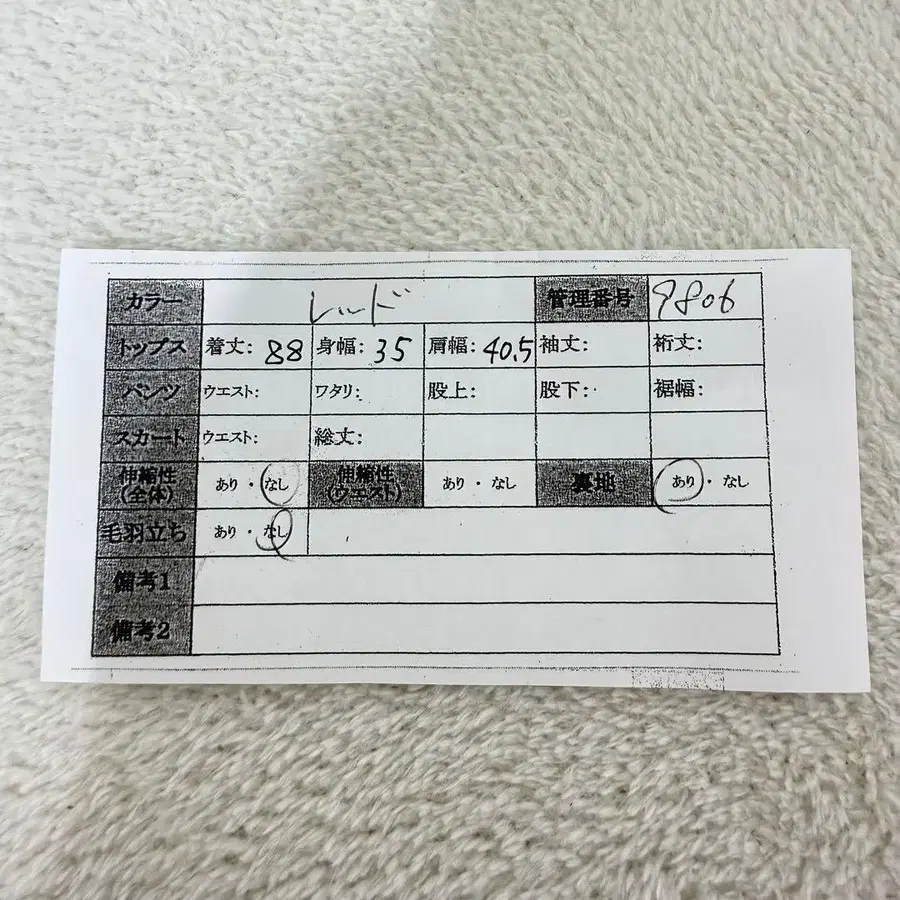 カラー レッド 管理番号 9806
トップス 着丈: 88 身幅: 35 肩幅: 40.5 袖丈: 裄丈:
パンツ ウエスト: ワタリ: 股上: 股下: 裾幅:
スカート ウエスト: 総丈:
伸縮性(全体) あり・なし 伸縮性(ウエスト) あり・なし 裏地 あり・なし
毛羽立ち あり・なし
備考1
備考2